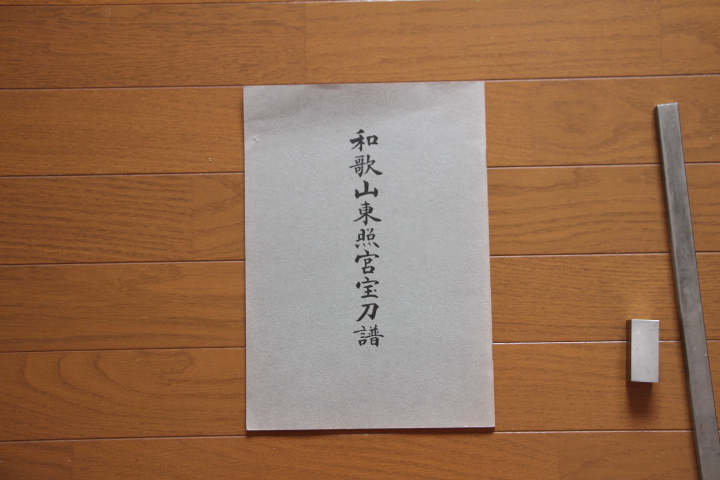 和歌山東照宮宝刀譜